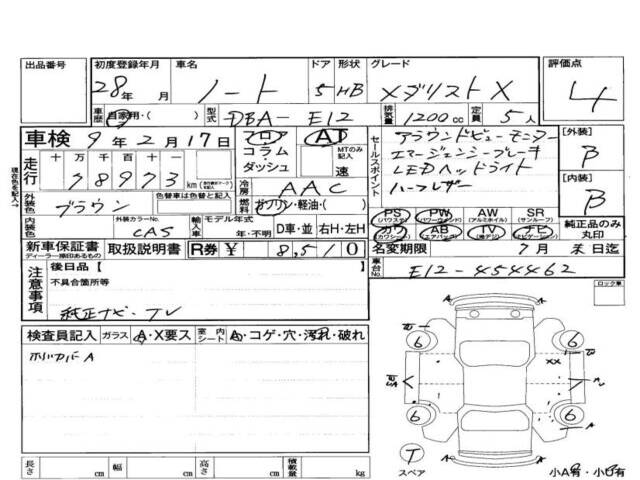 出品番号 初度登録年月 車名 ドア 形状 グレード 評価点
28年 月 ノート 5 HB メダリスト X 4
車歴 自家用・( ) 型式 DBA-E12 排気量 1200cc 定員 5人
車検 9年2月17日 フロア コラム・ダッシュ AT MTのみ記入 速
走行 十万 万 千 百 十 一
78973 km
セールスポイント
アラウンドビューモニター
エマージェンシーブレーキ
LEDヘッドライト
ハーフレザー
[外装] B
[内装] B
現在の色名を記入→
外装色 ブラウン 色替車は色替と記入
冷房 AAC
燃料 ガソリン・軽油・( )
内装色 外装カラーNo. CAS 輸入車 モデル年式 年・不明 D車・並 右H・左H
PS (パワステ) PW (パワーウィンド) AW (アルミホイル) SR (サンルーフ)
カワ (カワシート) AB (エアバック) TV (地デジ) ナビ (ナビゲーション)
純正品のみ丸印
新車保証書 ディーラー捺印あるもの 取扱説明書 R券 ¥ 8,510
名変期限 7月 末日迄
注意事項
後日品 [ ]
不具合箇所等
純正ナビ・TV
車台No. E12-454462
ロック車
検査員記入 ガラス A・X要ス 室内シート A・コゲ・穴・汚れ・破れ
ホイルカバーA
6 6
XX
6 6
T
スペア
小A有・小B有
長さ cm 幅 cm 高さ cm 積載量 kg